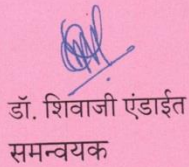 डॉ. शिवाजी एंडाईत
समन्वयक